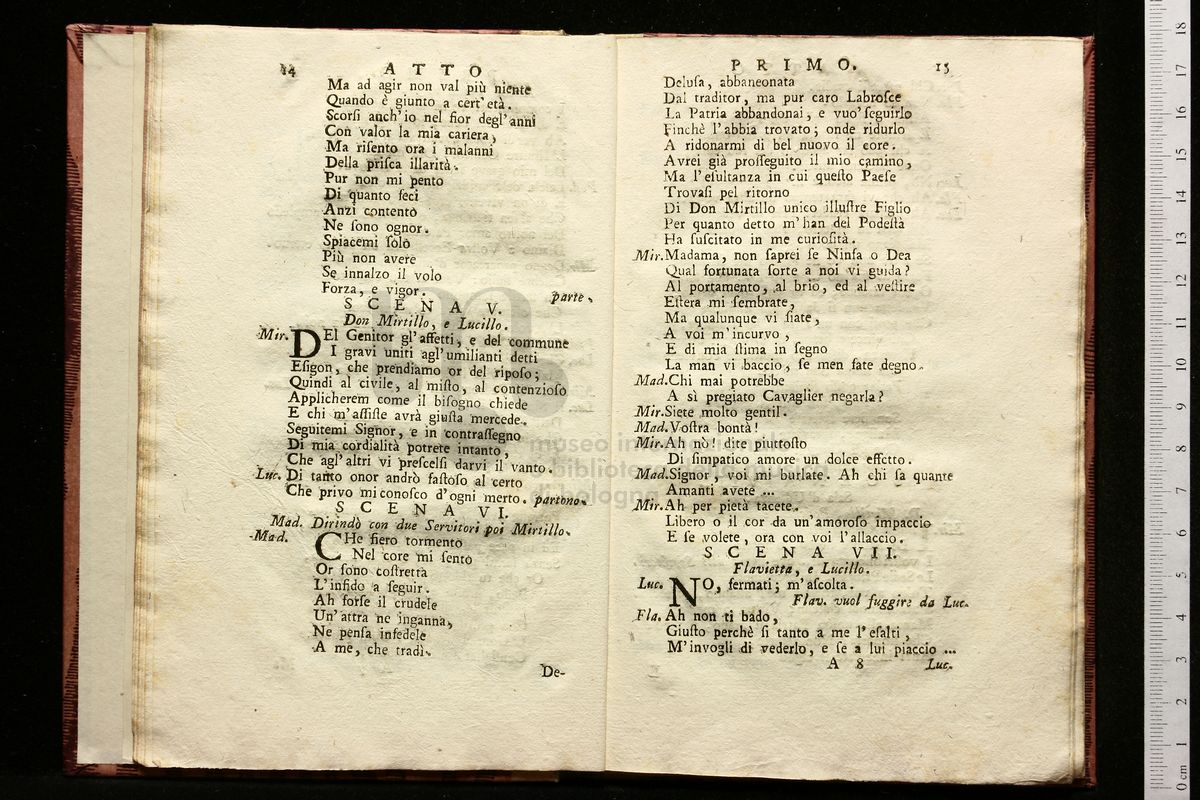 14 ATTO
Ma ad agir non val più niente
Quando è giunto a cert' età.
Scorſi anch' io nel fior degl' anni
Con valor la mia cariera,
Ma riſento ora i malanni
Della priſca illarità.
Pur non mi pento
Di quanto feci
Anzi contento
Ne ſono ognor.
Spiacemi ſolo
Più non avere
Se innalzo il volo
Forza, e vigor. parte.
SCENA V.
Don Mirtillo, e Lucillo.
Mir. DEl Genitor gl' affetti, e del commune
I gravi uniti agl' umilianti detti
Eſigon, che prendiamo or del ripoſo;
Quindi al civile, al miſto, al contenzioſo
Applicherem come il biſogno chiede
E chi m' aſſiſte avrà giuſta mercede.
Seguitemi Signor, e in contraſſegno
Di mia cordialità potrete intanto,
Che agl' altri vi preſcelſi darvi il vanto.
Luc. Di tanto onor andrò faſtoſo al certo
Che privo mi conoſco d' ogni merto. partono.
SCENA VI.
Mad. Dirindò con due Servitori poi Mirtillo.
Mad. CHe fiero tormento
Nel core mi ſento
Or ſono coſtretta
L' infido a ſeguir.
Ah forſe il crudele
Un' attra ne inganna,
Ne penſa infedele
A me, che tradì.
De-
PRIMO. 15
Deluſa, abbaneonata
Dal traditor, ma pur caro Labroſce
La Patria abbandonai, e vuo' ſeguirlo
Finchè l' abbia trovato; onde ridurlo
A ridonarmi di bel nuovo il core.
Avrei già proſſeguito il mio camino,
Ma l' eſultanza in cui queſto Paeſe
Trovaſi pel ritorno
Di Don Mirtillo unico illuſtre Figlio
Per quanto detto m' han del Podeſtà
Ha ſuſcitato in me curioſità.
Mir. Madama, non ſaprei ſe Ninfa o Dea
Qual fortunata ſorte a noi vi guida?
Al portamento, al brio, ed al veſtire
Eſtera mi ſembrate,
Ma qualunque vi ſiate,
A voi m' incurvo,
E di mia ſtima in ſegno
La man vi baccio, ſe men fate degno.
Mad. Chi mai potrebbe
A sì pregiato Cavaglier negarla?
Mir. Siete molto gentil.
Mad. Voſtra bontà!
Mir. Ah nò! dite piuttoſto
Di ſimpatico amore un dolce effetto.
Mad. Signor, voi mi burlate. Ah chi ſa quante
Amanti avete ...
Mir. Ah per pietà tacete.
Libero o il cor da un' amoroſo impaccio
E ſe volete, ora con voi l' allaccio.
SCENA VII.
Flavietta, e Lucillo.
Luc. NO, fermati; m' aſcolta.
Flav. vuol fuggire da Luc.
Fla. Ah non ti bado,
Giuſto perchè ſi tanto a me l' eſalti,
M' invogli di vederlo, e ſe a lui piaccio ...
A 8 Luc.